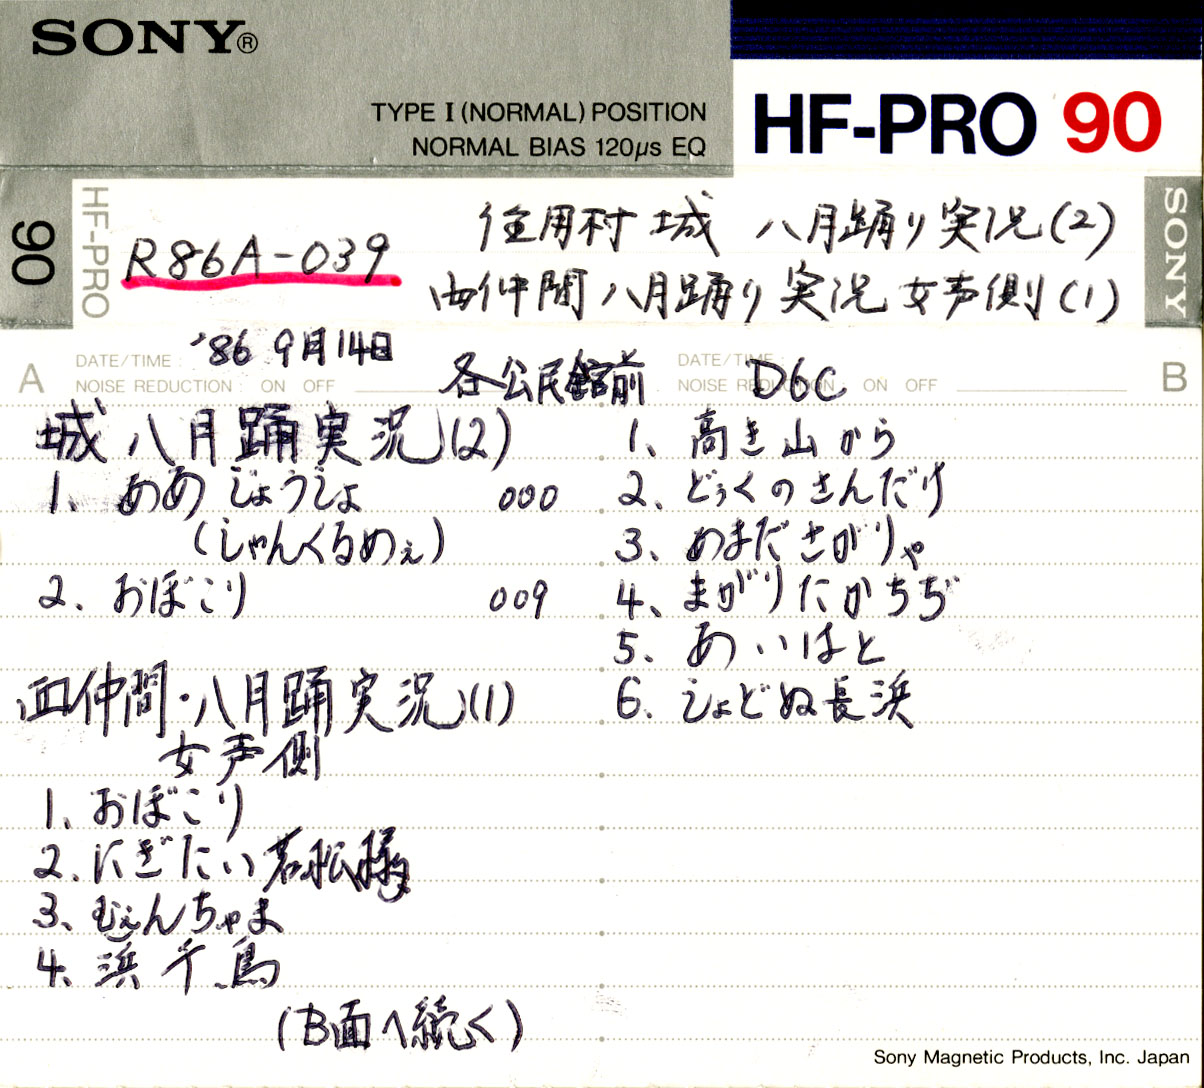 SONY®
TYPE I (NORMAL) POSITION
NORMAL BIAS 120μs EQ
HF-PRO 90
90
HF-PRO
R86A-039
住用村 城 八月踊り実況(2)
西仲間 八月踊り実況 女声側(1)
SONY
A
DATE/TIME:
NOISE REDUCTION: ON OFF
'86 9月14日
各公民館前
DATE/TIME:
NOISE REDUCTION ON OFF
D6C
B
城 八月踊実況(2)
1. あめじょうじょ 000
(しゃんくるめぇ)
2. おぼこり 009
西仲間・八月踊実況(1)
女声側
1. おぼこり
2. にぎたい若松様
3. むぇんちゃま
4. 浜千鳥
(B面へ続く)
1. 高き山から
2. どぅくのさんだけ
3. あまださがりゃ
4. まがりたかちぢ
5. あいはと
6. しょどぬ長浜
Sony Magnetic Products, Inc. Japan